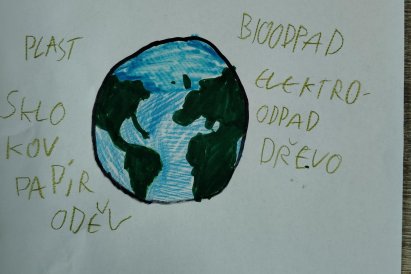 PLAST
SKLO
KOV
PAPÍR
ODĚV
BIOODPAD
ELEKTRO-
ODPAD
DŘEVO